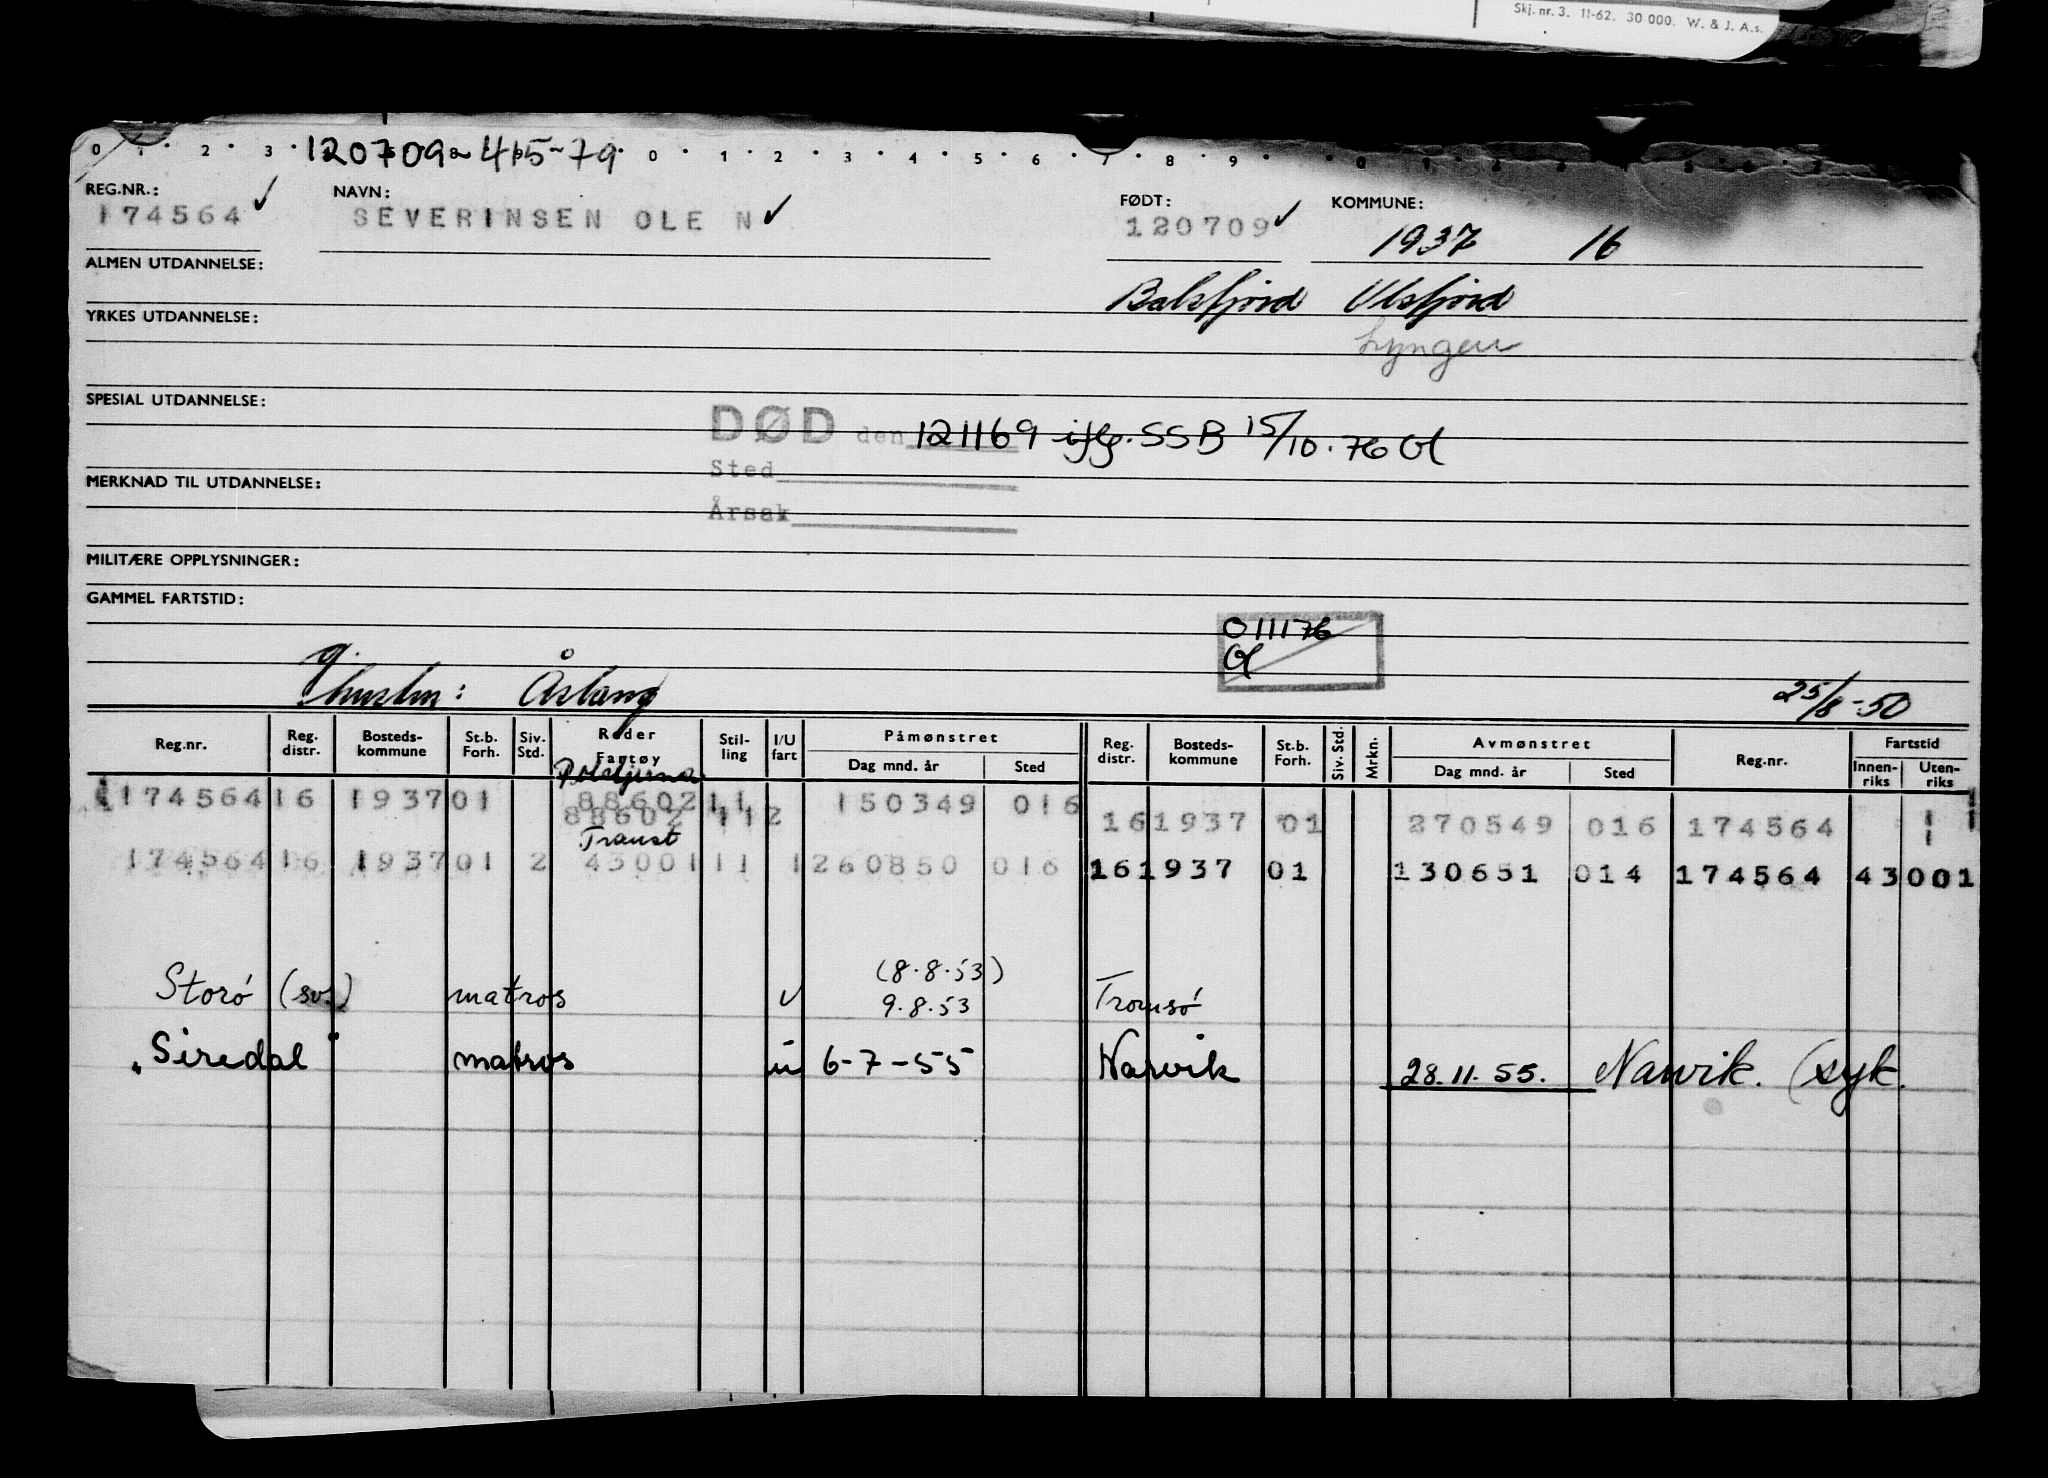 Skj. nr. 3. 11-62. 30 000. W. & J. A.s.
120709 415-79
REG.NR.: NAVN: FØDT: KOMMUNE:
174564 ✓ SEVERINSEN OLE N ✓ 120709 ✓ 1937 16
ALMEN UTDANNELSE:
Balsfjord Ulsfjord
YRKES UTDANNELSE:
Lyngen
SPESIAL UTDANNELSE:
DØD den 121169 iflg. SSB 15/10.76 Ol
Sted
MERKNAD TIL UTDANNELSE:
Årsak
MILITÆRE OPPLYSNINGER:
GAMMEL FARTSTID:
011176
Ol
g. hustru: Åslaug 25/8-50
Reg.nr. Reg. distr. Bosteds-kommune St.b. Forh. Siv. Std. Reder Fartøy Stil-ling I/U fart Påmønstret Dag mnd. år Sted Reg. distr. Bosteds-kommune St.b. Forh. Siv. Std. Mrkn. Avmønstret Dag mnd. år Sted Reg.nr. Fartstid Innen-riks Uten-riks
174564 16 1937 01 88602 11 150349 016
88602 112 16 1937 01 270549 016 174564
Transt
174564 16 1937 01 2 43001 11 1 260850 016 16 1937 01 130651 014 174564 43001
(8.8.53)
Storö (sv.) matros u 9.8.53 Tromsö
"Siredal" matros u 6-7-55 Narvik 28.11.55. Narvik. (syk.